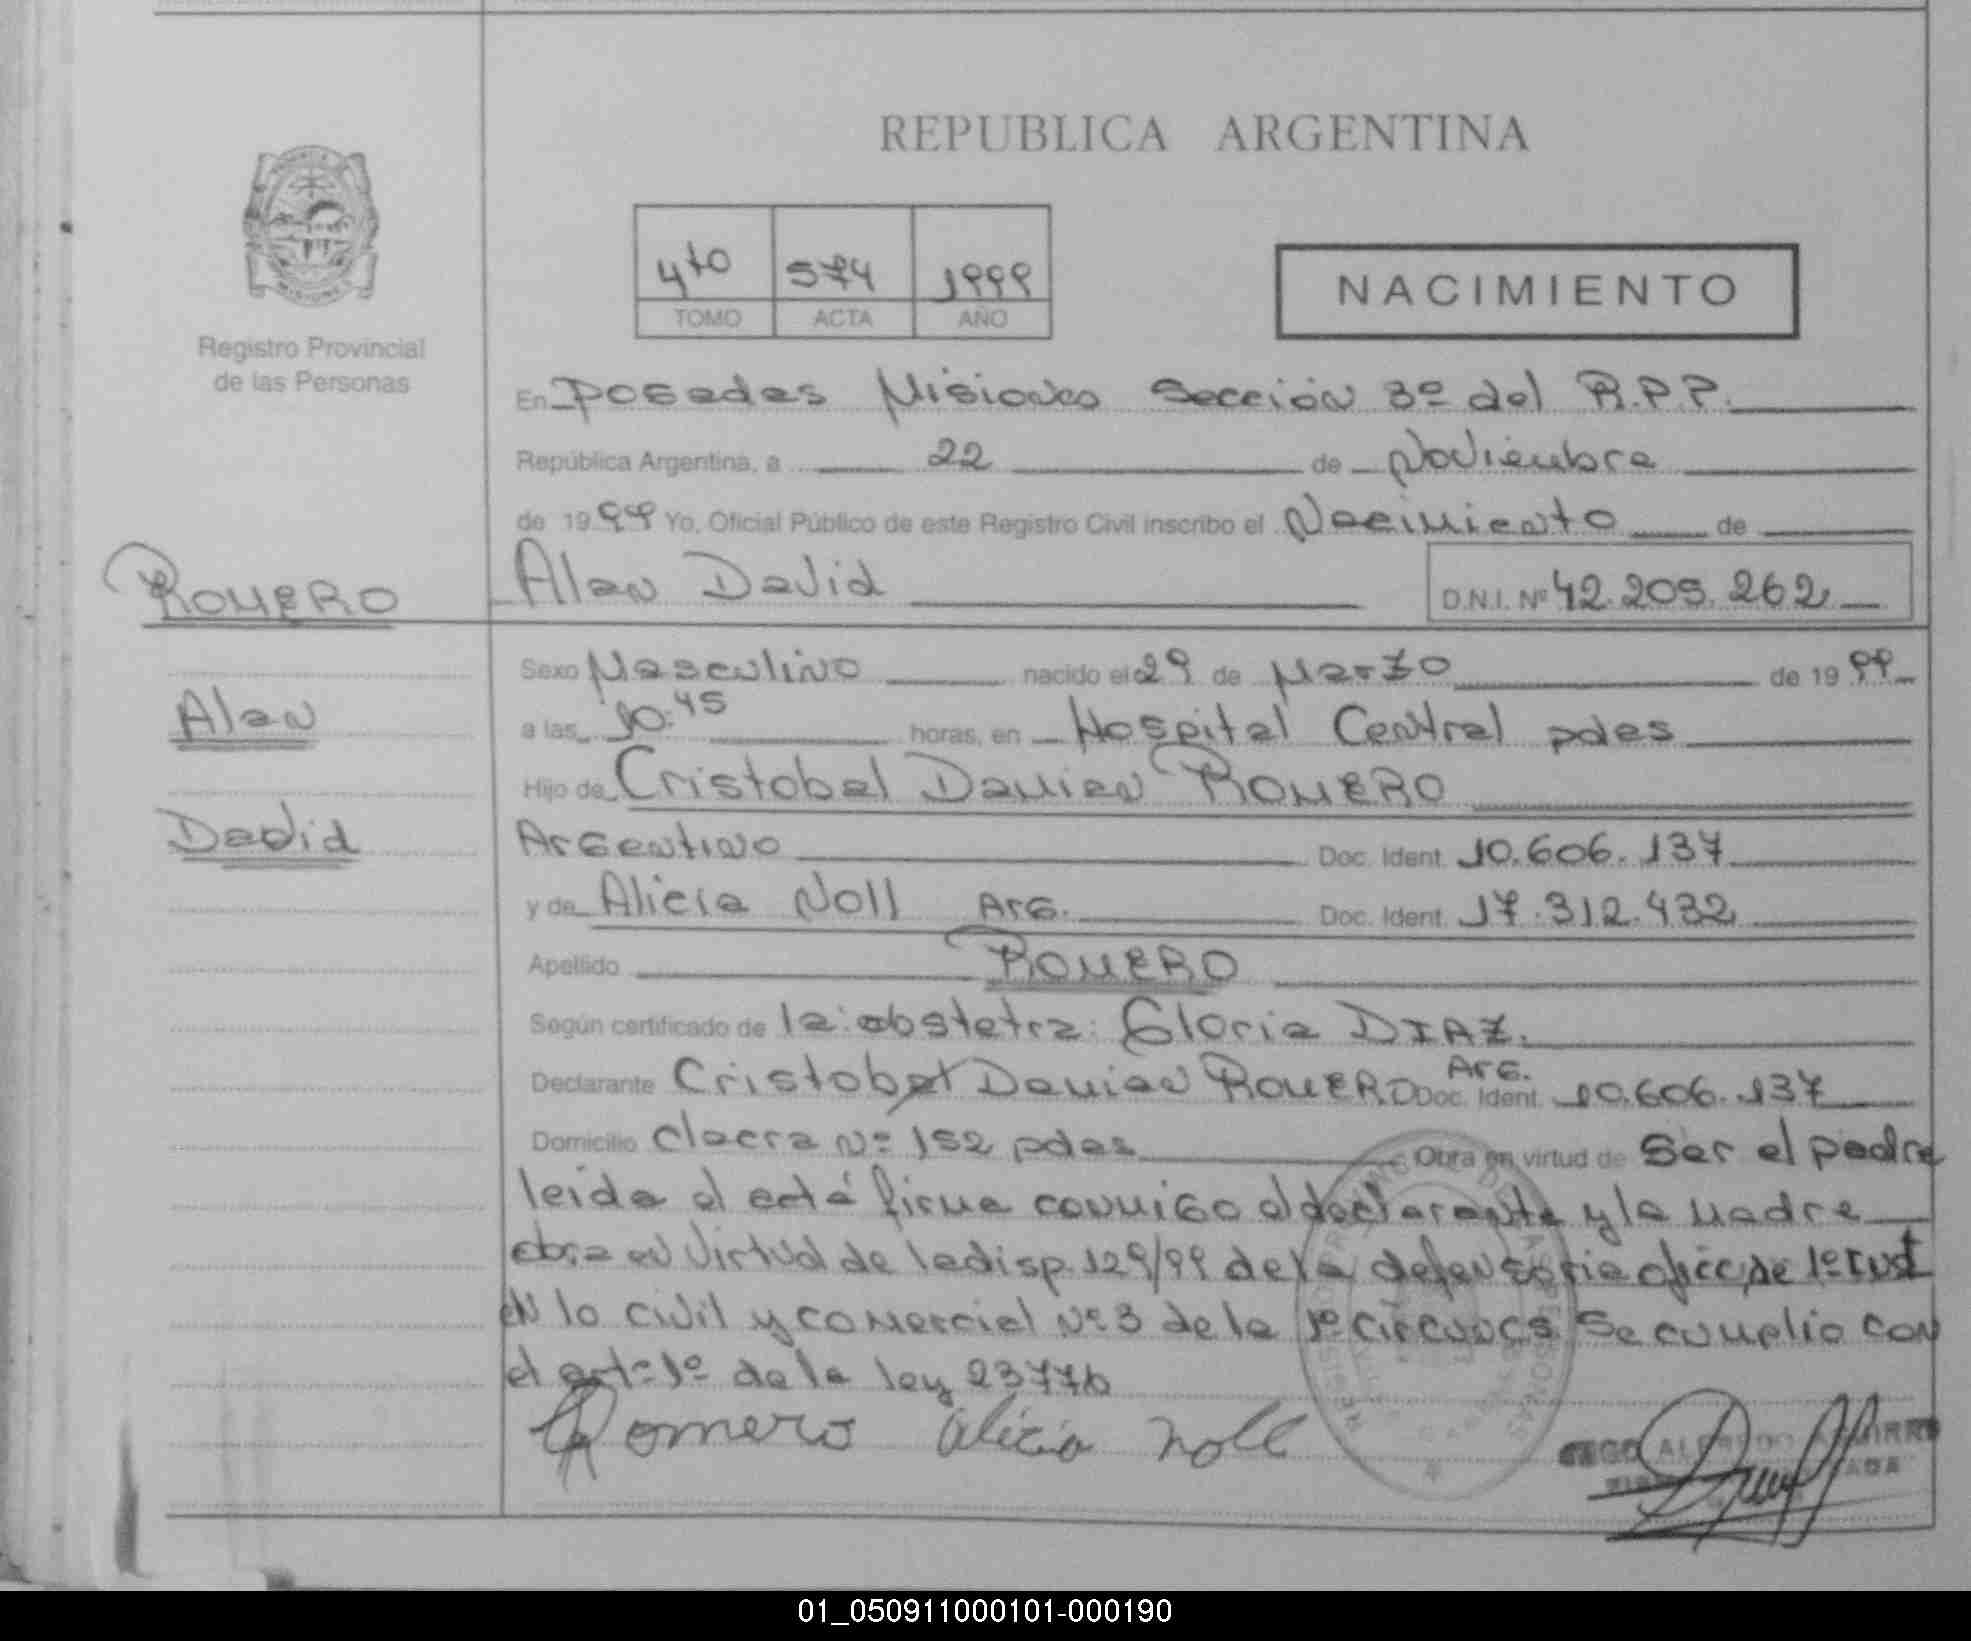 REPUBLICA ARGENTINA
4to 574 1999
TOMO ACTA AÑO
NACIMIENTO
MISIONES
Registro Provincial
de las Personas
En Posadas Misiones Sección 3º del R.P.P.
República Argentina, a 22 de Noviembre
de 1999 Yo, Oficial Público de este Registro Civil inscribo el Nacimiento de
ROMERO Alan David D.N.I. Nº 42.205.262
Sexo Masculino nacido el 29 de Marzo de 1999
Alan
a las 10:45 horas, en Hospital Central pdas
Hijo de Cristobal Damian ROMERO
David
Argentino Doc. Ident. 10.606.137
y de Alicia Noll Arg. Doc. Ident. 17.312.432
Apellido ROMERO
Según certificado de la: obstetra: Gloria DIAZ.
Declarante Cristobal Damian ROMERO Arg. Doc. Ident. 10.606.137
Domicilio chacra Nº 152 pdas Obra en virtud de Ser el padre
leida el acta firma conmigo el declarante y la madre
obra en virtud de la disp. 129/99 de la defensoria ofic. de 1º Inst
en lo civil y comercial Nº 3 de la 1º circuncs Se cumplio con
el art. 1º de la ley 23776
Romero Alicia Noll
01_050911000101-000190